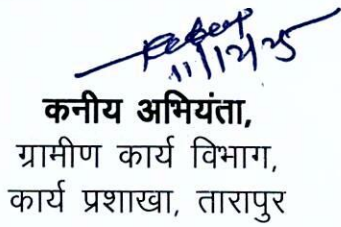 11/12/25
कनीय अभियंता,
ग्रामीण कार्य विभाग,
कार्य प्रशाखा, तारापुर